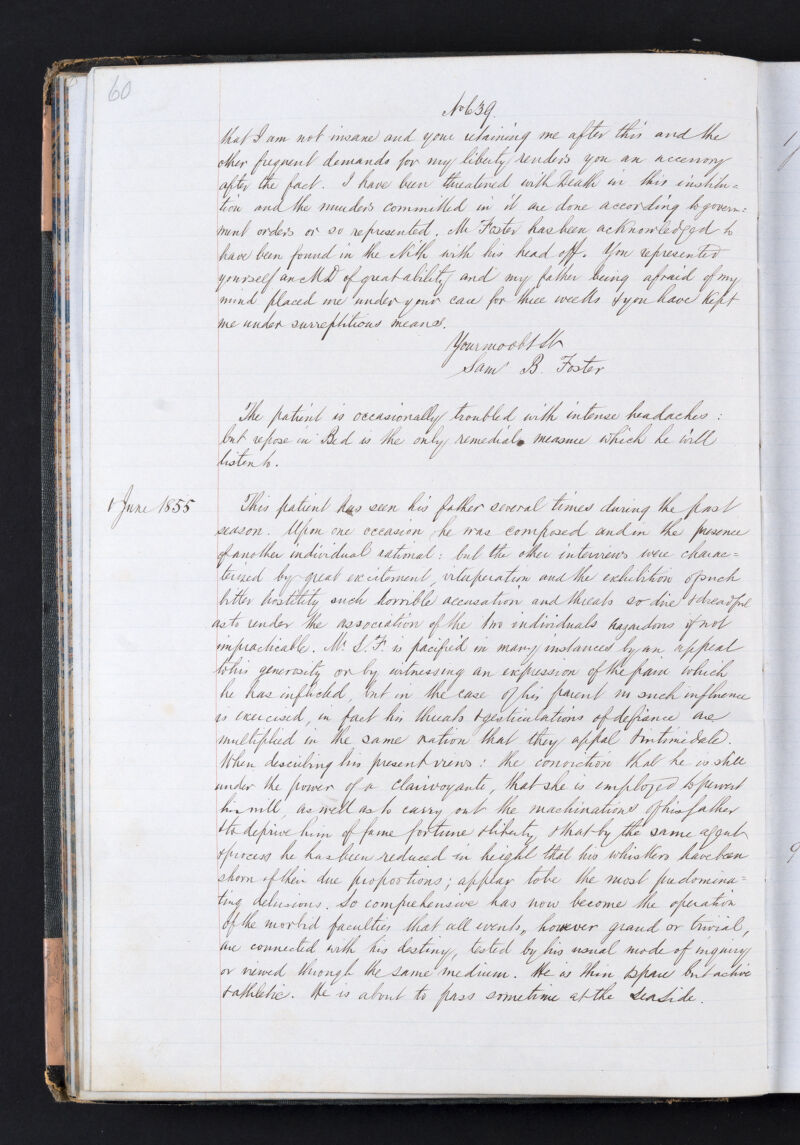 60
No 639.
that I am not insane and your retaining me after this and the
other frequent demands for my liberty renders you an accessory
after the fact. I have been threatened with Death in this institu=
tion and the murders committed in it are done according to govern=
ment orders or so represented. Mr Foster has been acknowledged to
have been found in the Nith with his head off. You represented
yourself an MD of great ability and my father being afraid of my
mind placed me under your care for three weeks & you have kept
me under surreptitious means.
Your mo obt St
Sam B. Foster
The patient is occasionally troubled with intense headaches:
but repose in Bed is the only remedial measure which he will
listen to.
1 June 1855
This patient has seen his father several times during the past
season. Upon one occasion he was composed and in the presence
of another individual rational: but the other interviews were charac=
terized by great excitement, vituperation and the exhibition of such
bitter hostility such horrible accusation and threats so dire & dreadful
as to render the association of the two individuals hazardous if not
impracticable. Mr S. F. is pacified in many instances by an appeal
to his generosity or by witnessing an expression of the pain which
he has inflicted, but in the case of his parent no such influence
is exercised, in fact his threats & gesticulations of defiance are
multiplied in the same ration that they appal & intimidate.
When describing his present views: the conviction that he is still
under the power of a clairvoyante, that she is employed to pervert
his will, as well as to carry out the machinations of his father
& to deprive him of fame fortune & liberty & that by the same agent
& process he has been reduced in height that his whiskers have been
shorn of their due proportions; appear to be the most predomina=
ting delusions. So comprehensive has now become the operation
of the morbid faculties that all events, however grand or trivial,
are connected with his destiny, tested by his usual mode of inquiry
or viewed through the same medium. He is thin & spare but active
& athletic. He is about to pass sometime at the Seaside.